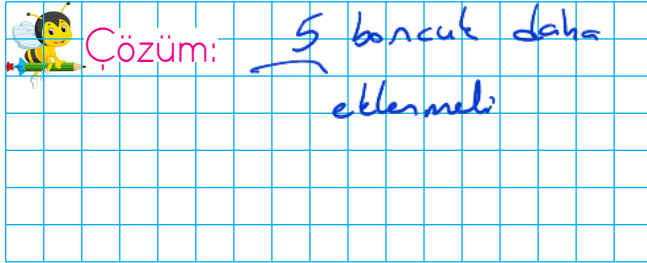 Çözüm: 5 boncuk daha
eklenmeli